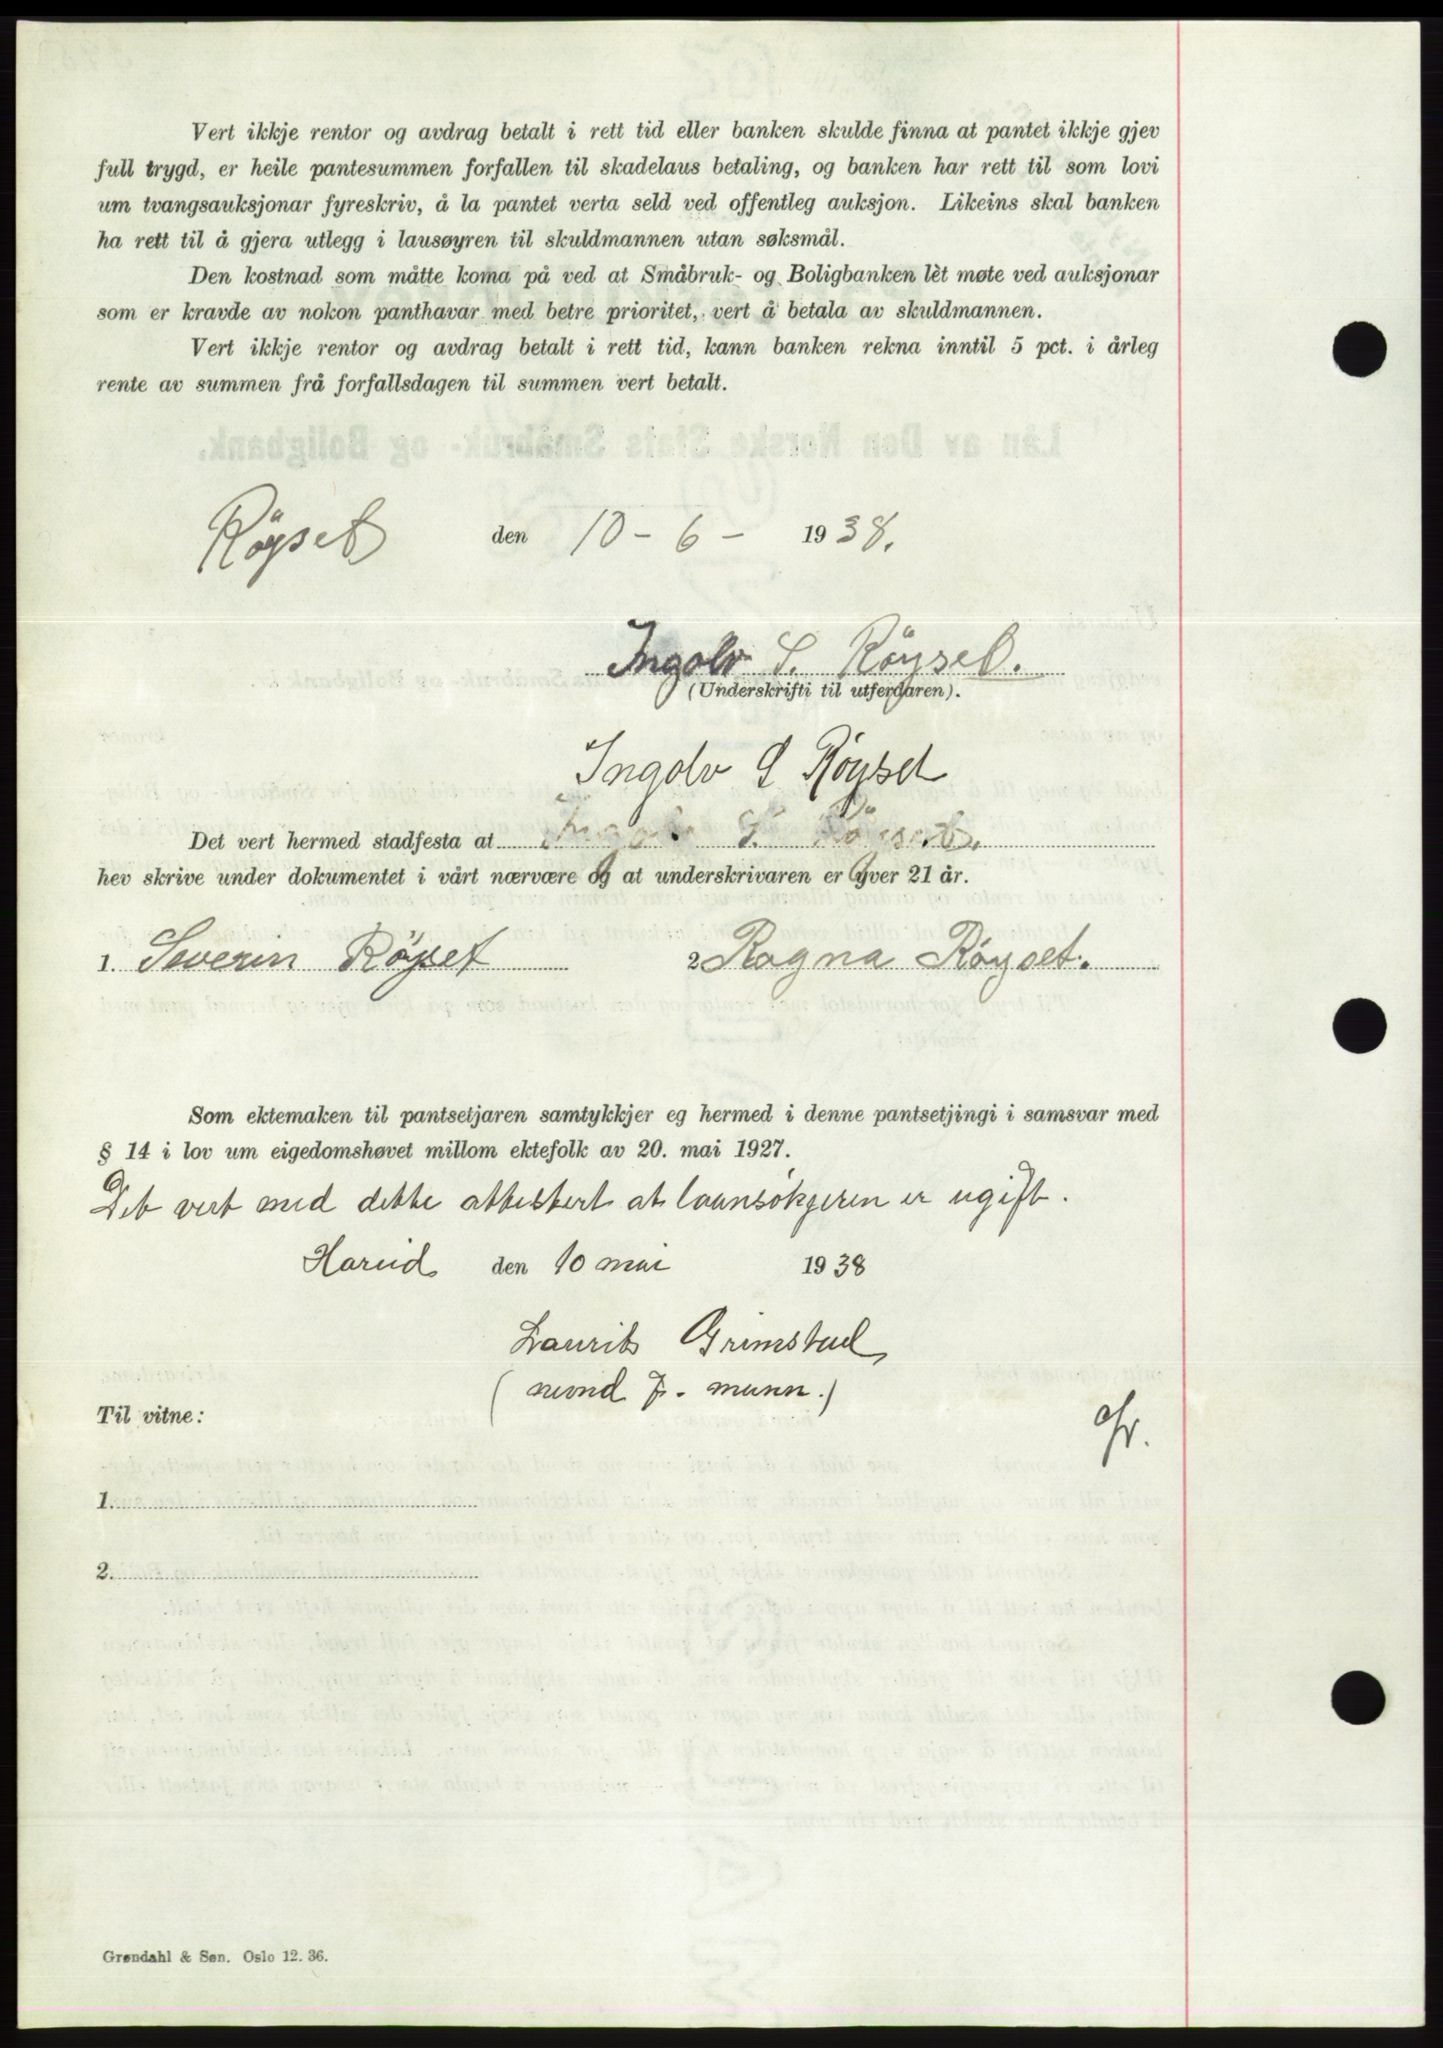 Vert ikkje rentor og avdrag betalt i rett tid eller banken skulde finna at pantet ikkje gjev
full trygd, er heile pantesummen forfallen til skadelaus betaling, og banken har rett til som lovi
um tvangsauksjonar fyreskriv, å la pantet verta seld ved offentleg auksjon. Likeins skal banken
ha rett til å gjera utlegg i lausøyren til skuldmannen utan søksmål.
Den kostnad som måtte koma på ved at Småbruk- og Boligbanken lèt møte ved auksjonar
som er kravde av nokon panthavar med betre prioritet, vert å betala av skuldmannen.
Vert ikkje rentor og avdrag betalt i rett tid, kann banken rekna inntil 5 pct. i årleg
rente av summen frå forfallsdagen til summen vert betalt.
Röyset den 10-6- 1938.
Ingolv S. Röyset.
(Underskrifti til utferdaren).
Ingolv S Röyset
Det vert hermed stadfesta at Ingolv S. Röyset.
hev skrive under dokumentet i vårt nærvære og at underskrivaren er yver 21 år.
1. Severin Röyset 2 Ragna Röyset.
Som ektemaken til pantsetjaren samtykkjer eg hermed i denne pantsetjingi i samsvar med
§ 14 i lov um eigedomshøvet millom ektefolk av 20. mai 1927.
Det vert med dette attestert at laansökjeren er ugift.
Hareid den 10 mai 1938
Laurits Grimstad
(nemnd f. mann.)
Til vitne:
1.
2.
Grøndahl & Søn. Oslo 12. 36.